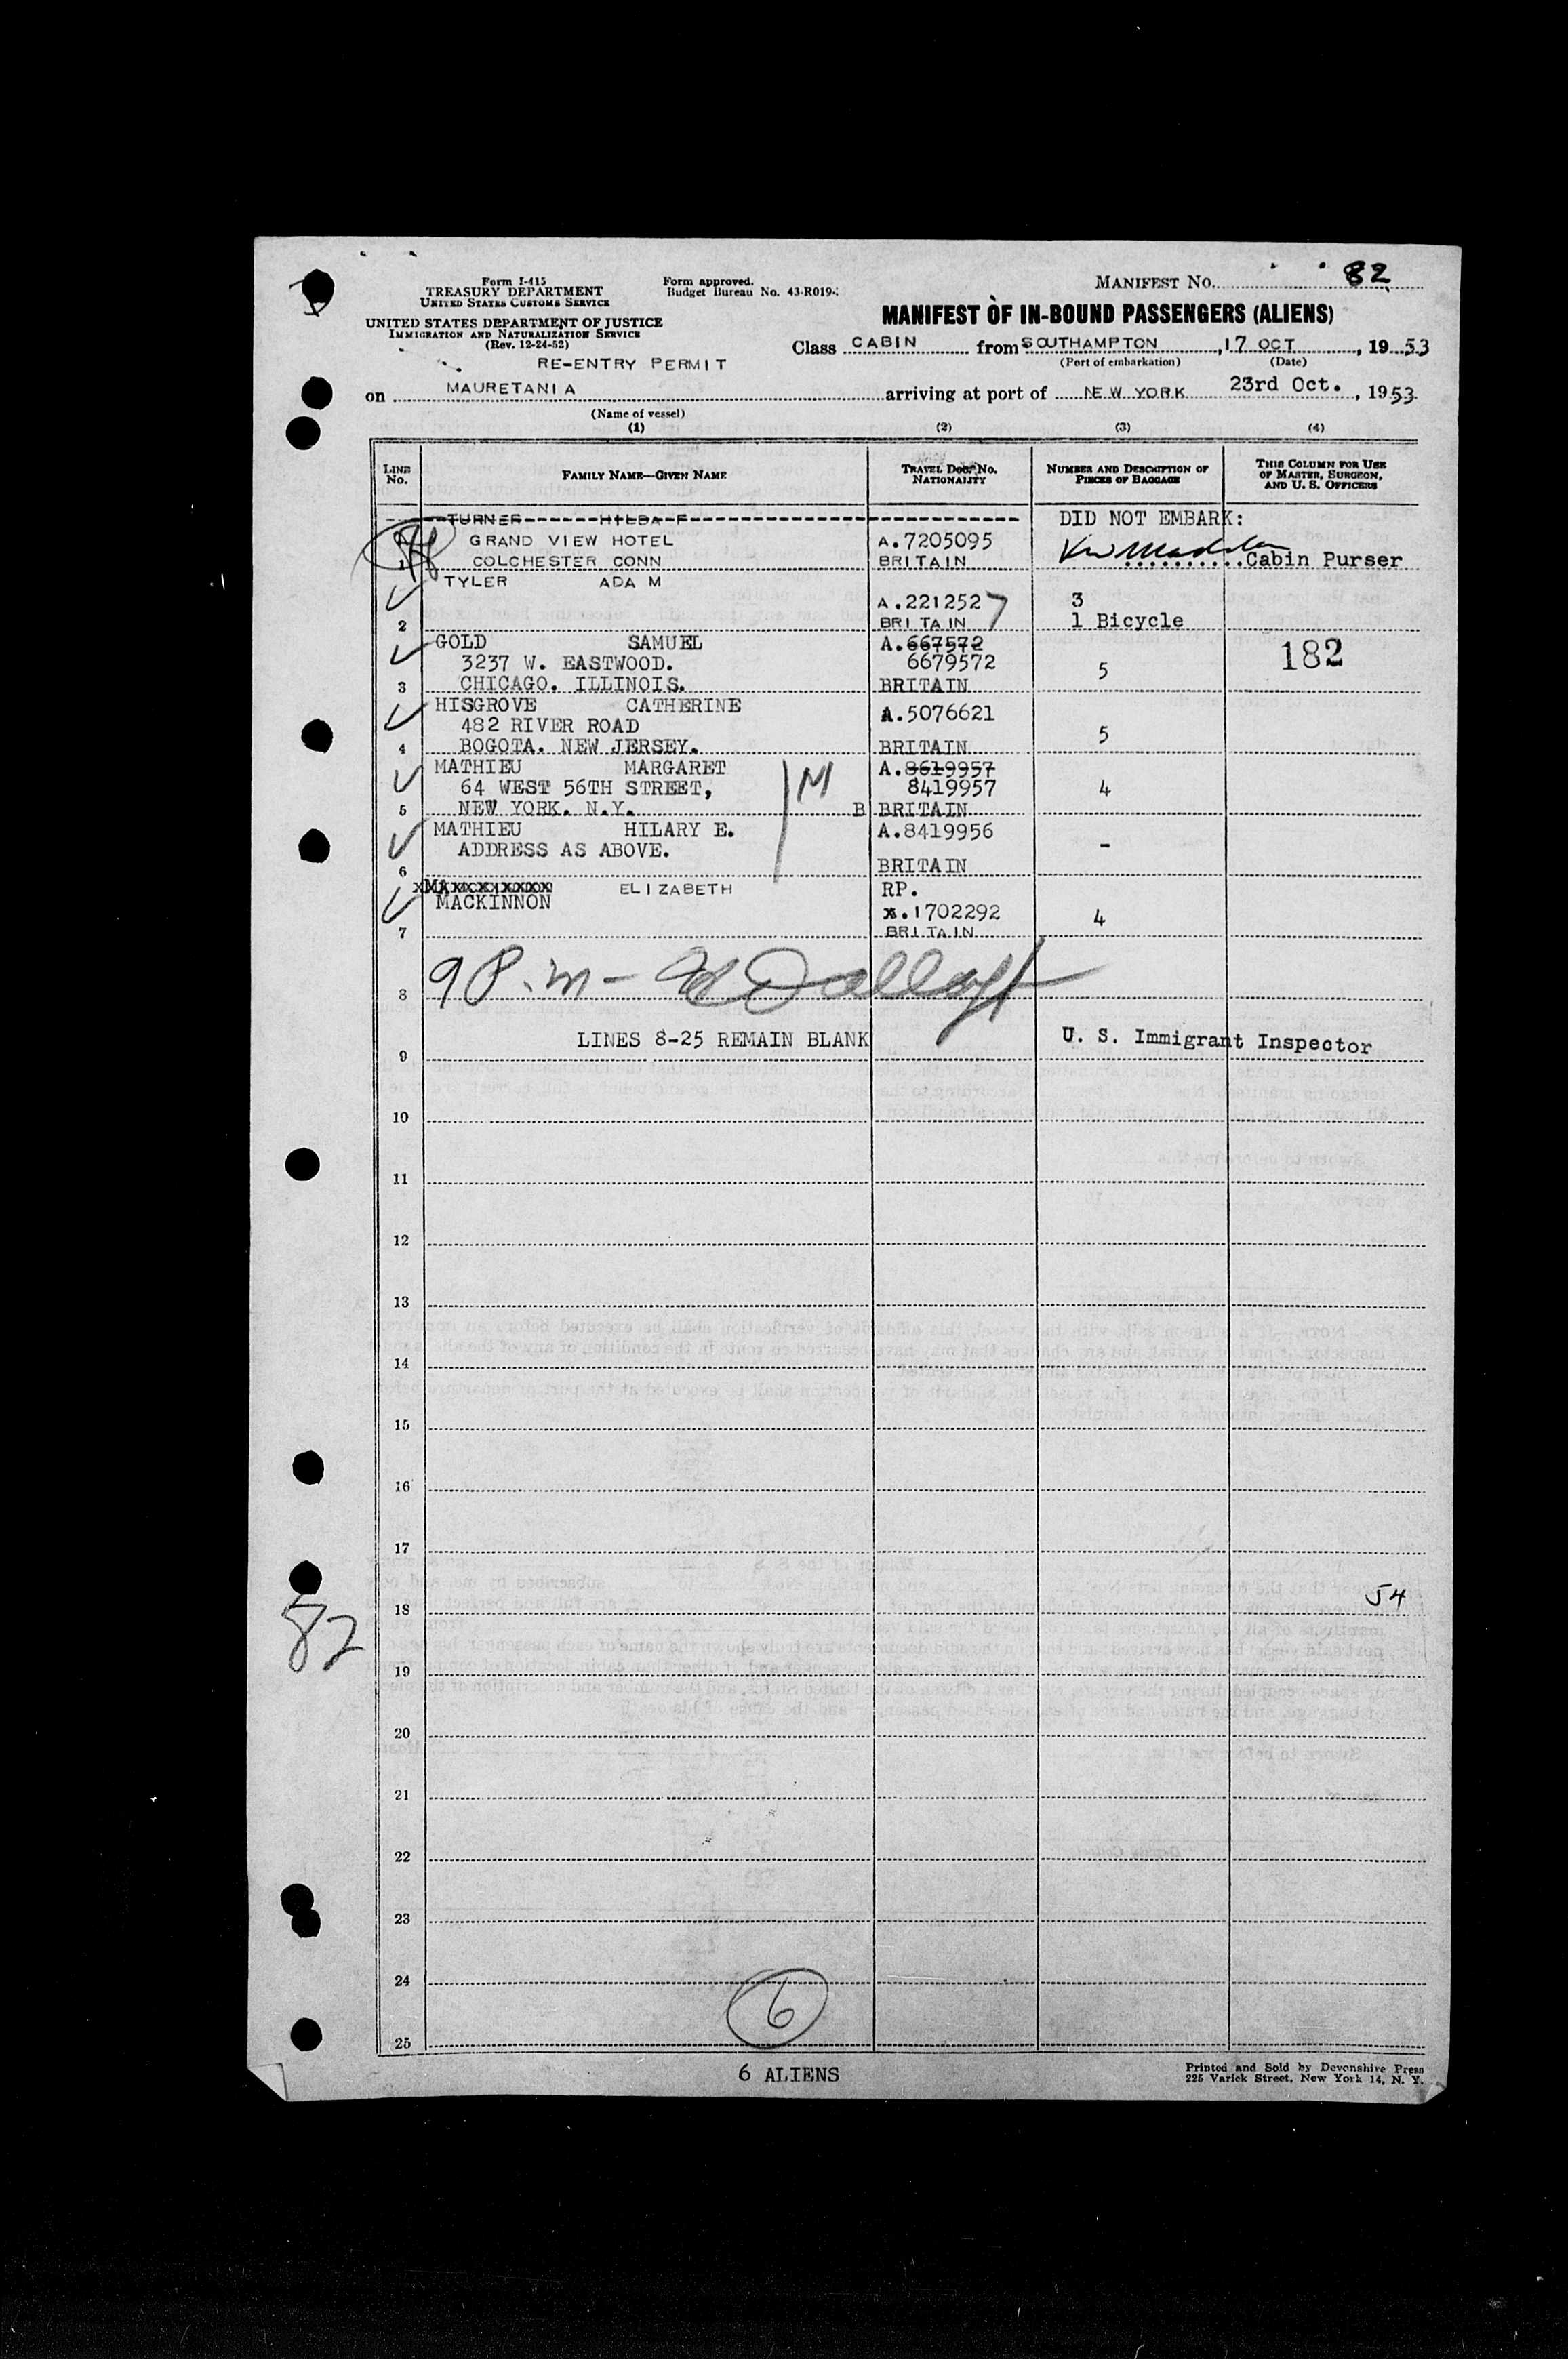 Form I-415
TREASURY DEPARTMENT
UNITED STATES CUSTOMS SERVICE
UNITED STATES DEPARTMENT OF JUSTICE
IMMIGRATION AND NATURALIZATION SERVICE
(Rev. 12-24-52)
Form approved.
Budget Bureau No. 43-R019-
MANIFEST NO. 82
MANIFEST OF IN-BOUND PASSENGERS (ALIENS)
Class CABIN from SOUTHAMPTON, 17 OCT, 1953
(Port of embarkation) (Date)
RE-ENTRY PERMIT
on MAURETANIA arriving at port of NEW YORK 23rd Oct., 1953
(Name of vessel)
(1) (2) (3) (4)
LINE No. FAMILY NAME—GIVEN NAME TRAVEL DOC. NO. NATIONALITY NUMBER AND DESCRIPTION OF PIECES OF BAGGAGE THIS COLUMN FOR USE OF MASTER, SURGEON, AND U. S. OFFICERS
TURNER HILDA F DID NOT EMBARK:
GRAND VIEW HOTEL A.7205095
1 COLCHESTER CONN BRITAIN ..........Cabin Purser
TYLER ADA M
A.2212527 3
2 BRITAIN 1 Bicycle
GOLD SAMUEL A.667572
3237 W. EASTWOOD. 6679572 5 182
3 CHICAGO. ILLINOIS. BRITAIN
HISGROVE CATHERINE
482 RIVER ROAD A.5076621
4 BOGOTA. NEW JERSEY. BRITAIN 5
MATHIEU MARGARET A.8619957
64 WEST 56TH STREET, M 8419957 4
5 NEW YORK. N.Y. B BRITAIN
MATHIEU HILARY E. A.8419956
ADDRESS AS ABOVE. -
6 BRITAIN
ELIZABETH RP.
MACKINNON .1702292 4
7 BRITAIN
9 P.m -
8
LINES 8-25 REMAIN BLANK U. S. Immigrant Inspector
9
10
11
12
13
14
15
16
17
54
18
82
19
20
21
22
23
24
6
25
6 ALIENS
Printed and Sold by Devonshire Press
225 Varick Street, New York 14, N. Y.